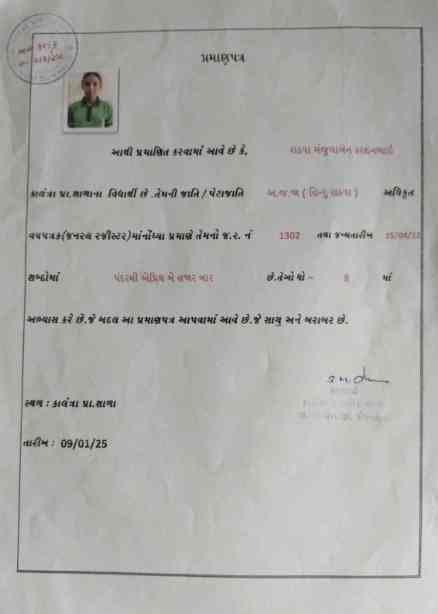 પ્રમાણપત્ર
આથી પ્રમાણિત કરવામાં આવે છે કે, રાઠવા મંજુલાબેન
કાલંત્રા પ્રા.શાળાના વિધાર્થી છે .તેમની જાતિ / પેટાજાતિ અ.જ.જા ( હિન્દુ રાઠવા ) અધિકૃત
વયપત્રક(જનરલ રજીસ્ટર)માંનોંધ્યા પ્રમાણે તેમનો જ.ર. નં 1302 તથા જન્મતારીખ 15/04/12
શબ્દોમાં પંદરમી એપ્રિલ બે હજાર બાર છે.તેઓ ધો – 8 માં
અભ્યાસ કરે છે.જે બદલ આ પ્રમાણપત્ર આપવામાં આવે છે.જે સાચુ અને બરાબર છે.
સ્થળ : કાલંત્રા પ્રા.શાળા
તારીખ : 09/01/25